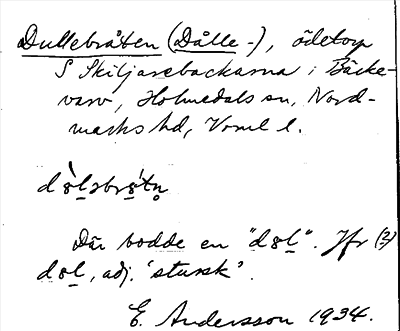 Dullebråten (Dålle-), ödetorp
S Skiljarebackarna i Bäcke-
varv, Holmedals sn, Nord-
marks hd, Vrml l.
Där bodde en "døl". Jfr (?)
døl, adj. 'stursk'.
E. Andersson 1934.